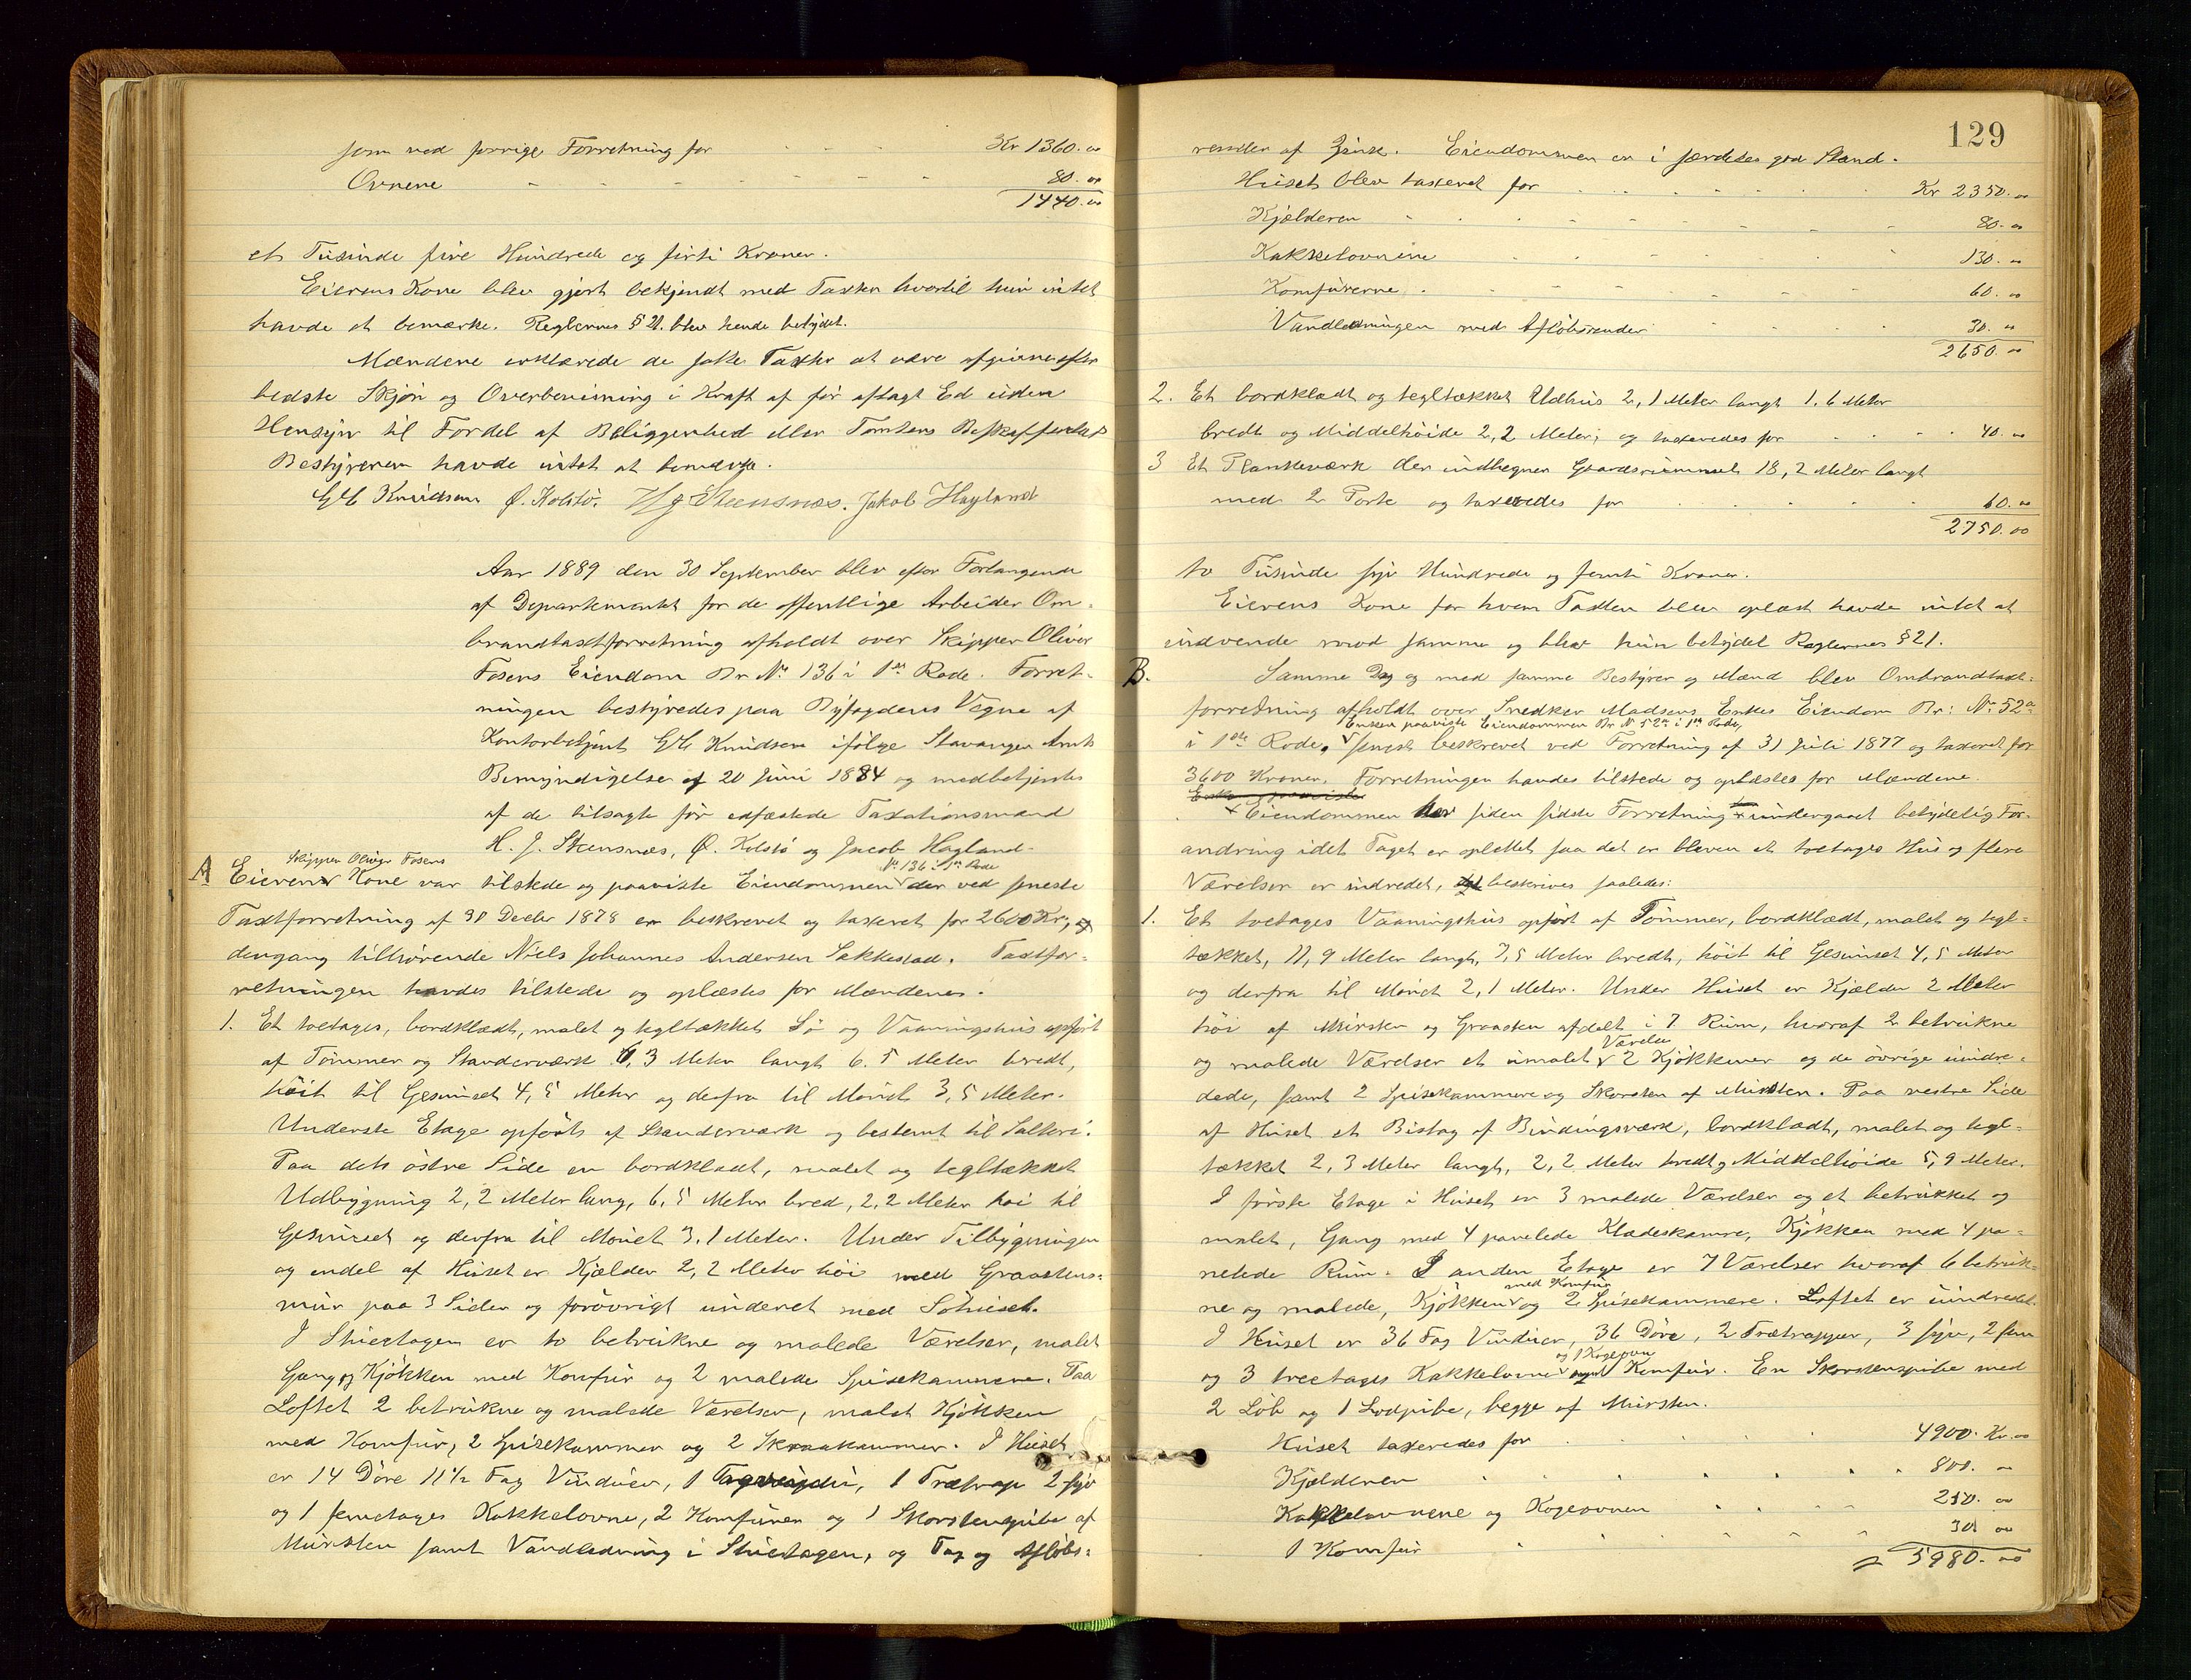 som ved forrige Forretning for - - - Kr 1360.00
Ovnene - - - - - - - - 80.00
1440.00
et Tusinde fire Hundrede og firti Kroner.
Eierens Kone blev gjort bekjendt med Taxten hvortil hun intet
havde at bemærke. Reglernes § 21. blev hende betydet.
Mændene erklærede de satte Taxter at være afgivne efter
bedste Skjøn og Overbevisning i Kraft af før aflagt Ed uden
Hensyn til Fordel af Beliggenhed eller Tomtens Beskaffenhed
Bestyreren havde intet at bemærke.
G H Knudsen Ø. Kolstø. H J Steensnæs. Jakob Hagland
Aar 1889 den 30 September blev efter Forlangende
af Departementet for de offentlige Arbeider Om-
brandtaxtforretning afholdt over Skipper Oliver
Fosens Eiendom Br. No 136 i 1ste Rode. Forret-
ningen bestyredes paa Byfogdens Vegne af
Kontorbetjent G H Knudsen ifølge Stavanger Amts
Bemyndigelse af 20 Juni 1884 og medbetjentes
af de tilsagte før edfæstede Taxationsmænd
H. J. Stensnæs, Ø. Kolstø og Jacob Hagland-
Skipper Oliver Fosens No 136 i 1ste Rode
A Eierens Kone var tilstede og paaviste Eiendommen der ved sneste
Taxtforretning af 30 Decbr 1878 er beskrevet og taxeret for 2600 Kr, og
dengang tilhørende Niels Johannes Andersen Sakkestad. Taxtfor-
retningen havdes tilstede og oplæstes for Mændenes.
1. Et toetages, bordklædt, malet og tegltækket Sø og Vaaningshus opført
af Tømmer og Standerværk 6,3 Meter langt 6.5 Meter bredt,
høit til Gesimset 4,5 Meter og derfra til Mønet 3,5 Meter.
Underste Etage opførts af Standerværk og bestemt til Salteri.
Paa dets østre Side en bordklædt, malet og tegltækket
Udbygning 2,2 Meter lang, 6,5 Meter bred, 2,2 Meter høi til
Gesimset og derfra til Mønet 3,1 Meter. Under Tilbygningen
og endel af Huset er Kjælder 2,2 Meter høi med Graastens-
mur paa 3 Sider og forøvrigt inderet med Søhuset.
I Stuetagen er to betrukne og malede Værelser, malet
Gang og Kjøkken med Komfur og 2 malede Spisekammere. Paa
Loftet 2 betrukne og malede Værelser, malet Kjøkken
med Komfur, 2 Spisekammer og 2 Skraakammer. I Huset
er 14 Døre 11½ Fag Vinduer, 1 Tagvindu, 1 Trætrap 2 syv
og 1 femetages Kakkelovne, 2 Komfurer og 1 Skorstenspibe af
Mursten samt Vandledning i Stuetagen, og Tag og Afløbs-
129
render af Zink. Eiendommen er i særdeles god Stand.
Huset blev taxeret for Kr 2350.00
Kjælderen 80.00
Kakkelovnene 130.00
Komfurerne 60.00
Vandledningen med Afløbsrender 30.00
2650.00
2. Et bordklædt og tegltækket Udhus 2,1 Meter langt 1.6 Meter
bredt og Middelhøide 2,2 Meter; og taxeredes for 40.00
3 Et Plankeværk der indhegner Gaardsrummet 18,2 Meter langt
med 2 Porte og taxeredes for 60.00
2750.00
to Tusinde syv Hundrede og femti Kroner.
Eierens Kone for hvem Taxten blev oplæst havde intet at
indvende mod samme og blev hun betydet Reglernes § 21.
B. Samme Dag og med samme Bestyrer og Mænd blev Ombrandtaxt-
forretning afholdt over Snedker Madsens Enkes Eiendom Br: No 52a
Enken paaviste Eiendommen Br No 52a i 1ste Rode,
i 1ste Rode, senest beskrevet ved Forretning af 31 Juli 1877 og taxeret for
3600 Kroner. Forretningen havdes tilstede og oplæstes for Mændene.
Enken paaviste
Eiendommen har siden sidste Forretning undergaaet betydelig For-
andring idet Taget er opløftet saa det er bleven et toetages Hus og flere
Værelser er indredet, beskrives saaledes:
1. Et toetages Vaaningshus opført af Tømmer, bordklædt, malet og tegl-
tækket, 11,9 Meter langt, 7,5 Meter bredt, høit til Gesimset 4,5 Meter
og derfra til Mønet 2,1 Meter. Under Huset er Kjælder 2 Meter
høi af Mursten og Graasten afdelt i 7 Rum, hvoraf 2 betrukne
Værelse
og malede Værelser et umalet 2 Kjøkkener og de øvrige uindre-
dede, samt 2 Spisekammere og Skorsten af Mursten. Paa vestre Side
af Huset et Bislag af Bindingsværk, bordklædt, malet og tegl-
tækket 2,3 Meter langt, 2,2 Meter bredt og Middelhøide 5,9 Meter.
I første Etage i Huset er 3 malede Værelser og et betrukket og
malet, Gang med 4 panelede Klædeskamre, Kjøkken med 4 pa-
nelede Rum. I anden Etage er 7 Værelser hvoraf 6 betruk-
med Komfur
ne og malede, Kjøkken og 2 Spisekammere. Loftet er uindredet.
I Huset er 36 Fag Vinduer, 36 Døre, 2 Trætrapper, 3 syv, 2 fem
og 1 Kogeovn
og 3 treetages Kakkelovne Komfur. En Skorstenspibe med
2 Løb og 1 Lodpibe, begge af Mursten.
Huset taxeredes for 4900. Kr.00
Kjælderen 800.00
Kakkelovnene og Kogeovnen 250.00
1 Komfur 30.00
= 5980.00